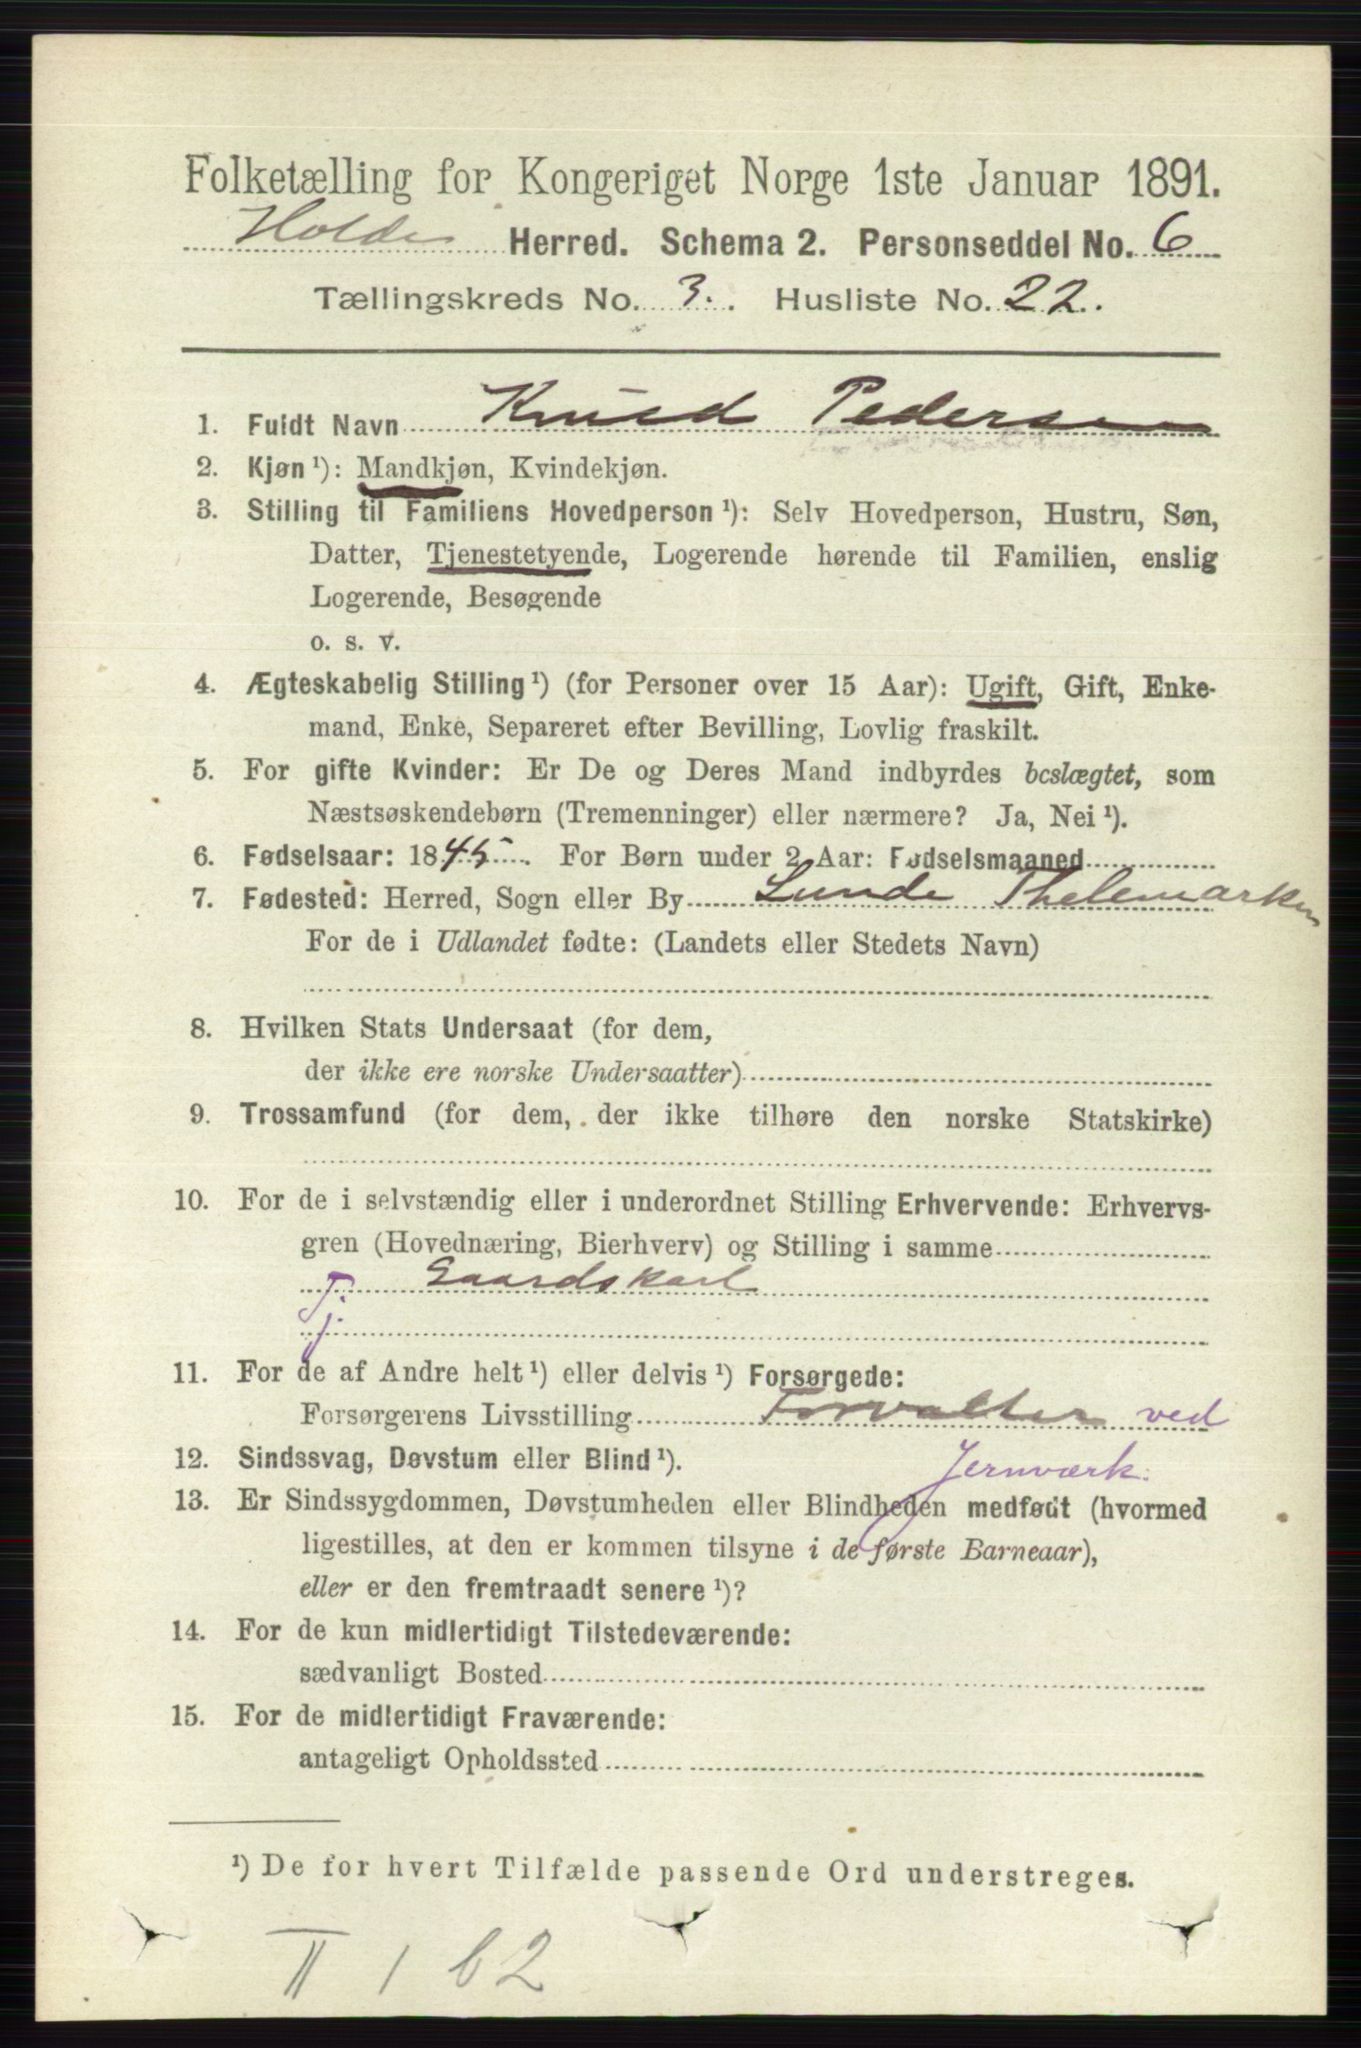 Folketælling for Kongeriget Norge 1ste Januar 1891.
Holden Herred. Schema 2. Personseddel No. 6
Tællingskreds No. 3. Husliste No. 22.
1. Fuldt Navn Knud Pedersen
2. Kjøn ¹): Mandkjøn, Kvindekjøn.
3. Stilling til Familiens Hovedperson ¹): Selv Hovedperson, Hustru, Søn,
Datter, Tjenestetyende, Logerende hørende til Familien, enslig
Logerende, Besøgende
o. s. v.
4. Ægteskabelig Stilling ¹) (for Personer over 15 Aar): Ugift, Gift, Enke-
mand, Enke, Separeret efter Bevilling, Lovlig fraskilt.
5. For gifte Kvinder: Er De og Deres Mand indbyrdes beslægtet, som
Næstsøskendebørn (Tremenninger) eller nærmere? Ja, Nei ¹).
6. Fødselsaar: 1845. For Børn under 2 Aar: Fødselsmaaned
7. Fødested: Herred, Sogn eller By Lunde Thelemarken
For de i Udlandet fødte: (Landets eller Stedets Navn)
8. Hvilken Stats Undersaat (for dem,
der ikke ere norske Undersaatter)
9. Trossamfund (for dem, der ikke tilhøre den norske Statskirke)
10. For de i selvstændig eller i underordnet Stilling Erhvervende: Erhvervs-
gren (Hovednæring, Bierhverv) og Stilling i samme
Gaardskarl
Tj.
11. For de af Andre helt ¹) eller delvis ¹) Forsørgede:
Forsørgerens Livsstilling Forvalter ved
Jernværk.
12. Sindssvag, Døvstum eller Blind ¹).
13. Er Sindssygdommen, Døvstumheden eller Blindheden medfødt (hvormed
ligestilles, at den er kommen tilsyne i de første Barneaar),
eller er den fremtraadt senere ¹)?
14. For de kun midlertidigt Tilstedeværende:
sædvanligt Bosted
15. For de midlertidigt Fraværende:
antageligt Opholdssted
¹) De for hvert Tilfælde passende Ord understreges.
II 1 b2